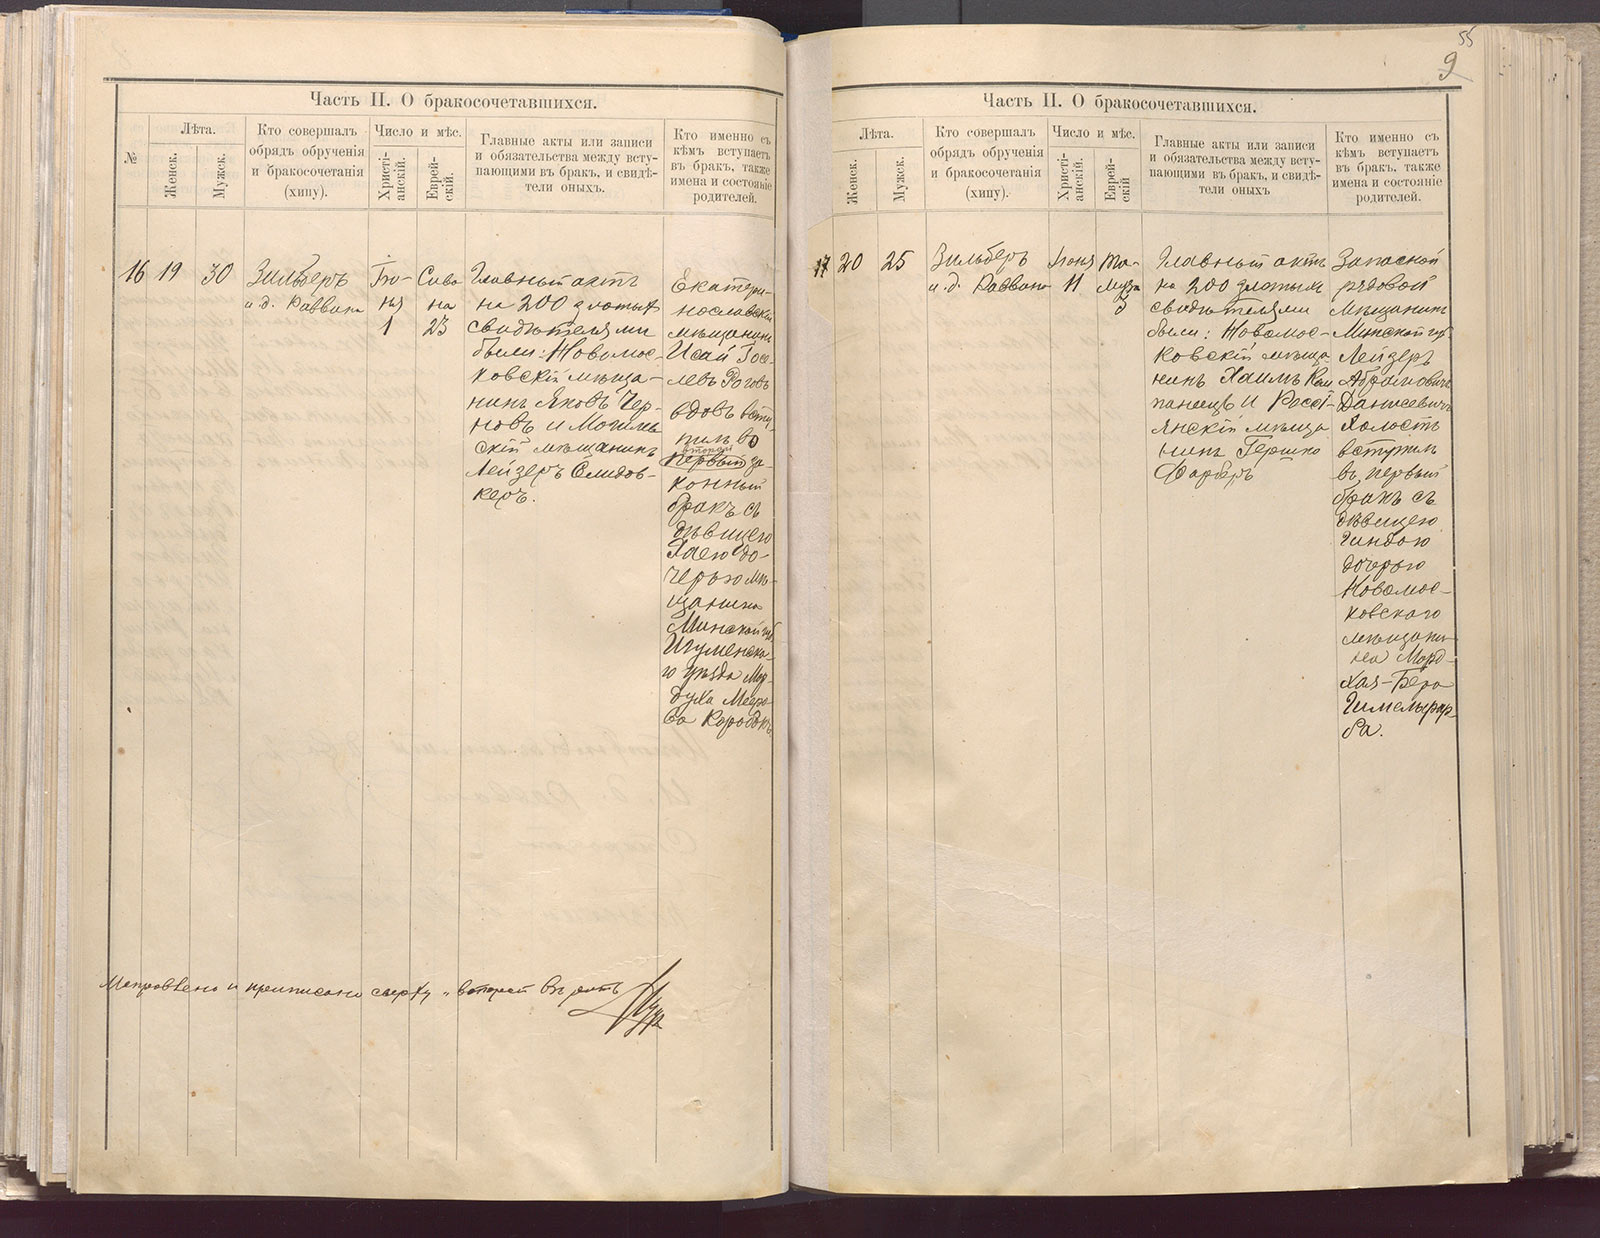 Часть II. О бракосочетавшихся.
№
Лѣта.
Женск.
Мужск.
Кто совершалъ
обрядъ обрученія
и бракосочетанія
(хипу).
Число и мѣс.
Христі-
анскій.
Еврей-
скій.
Главные акты или записи
и обязательства между всту-
пающими въ бракъ, и свидѣ-
тели оныхъ.
Кто именно съ
кѣмъ вступаетъ
въ бракъ, также
имена и состояніе
родителей.
16
19
30
Зильберъ
и.д. Раввина
Iю-
ня
1
Сива
на
23
Главный актъ
на 200 злотых
свидѣтелями
были: Новомос-
ковскій мѣща-
нинъ Яковъ Чер-
новъ и Могилев
скій мѣщанинъ
Лейзеръ
керъ.
Екатери-
нославскій
мѣщанинъ
Исай Iосе-
левъ Роговъ
вдовъ всту-
пилъ во
второй
первый за-
конный
бракъ съ
дѣвицею
Хаею до-
черью мѣ-
щанина
Минской губ.
Игуменска-
го уѣзда Мор-
духа Меера-
ва
Исправлено и приписано сверху „второй
55
9
Часть II. О бракосочетавшихся.
Лѣта.
Женск.
Мужск.
Кто совершалъ
обрядъ обрученія
и бракосочетанія
(хипу).
Число и мѣс.
Христі-
анскій.
Еврей-
скій
Главные акты или записи
и обязательства между всту-
пающими въ бракъ, и свидѣ-
тели оныхъ
Кто именно съ
кѣмъ вступаетъ
въ бракъ, также
имена и состояніе
родителей.
17
20
25
Зильберъ
и.д. Раввина
Iюня
11
Та-
муза
3
Главный актъ
на 200 злотыхъ
свидѣтелями
были: Новомос-
ковскій мѣща
нинъ Хаимъ Кам
панеецъ и Россі-
янскій мѣща
нинъ Гершко
Фарберъ
Запасной
рядовой
мѣщанинъ
Минской губ
Лейзеръ
Абрамовичъ
Данисевичъ
Холостъ
вступилъ
въ первый
бракъ съ
дѣвицею
Гинбою
дочерью
Новомос-
ковскаго
мѣщани-
на Морд-
хая-Бера
Гимельфар-
ба.